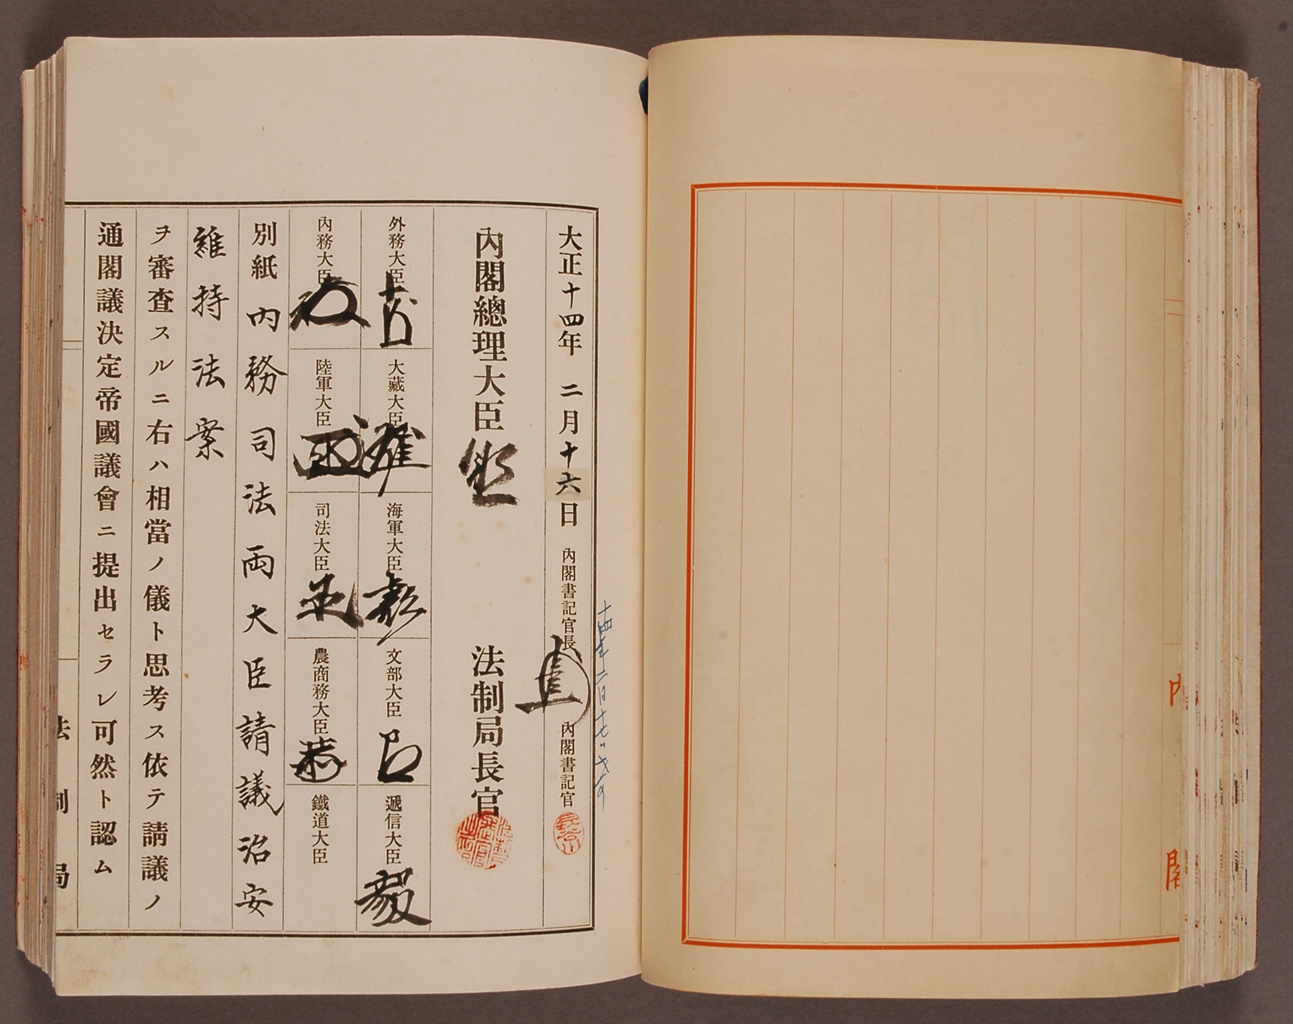 大正十四年 二月十六日 內閣書記官長 內閣書記官
內閣總理大臣 法制局長官
外務大臣 大藏大臣 海軍大臣 文部大臣 遞信大臣
內務大臣 陸軍大臣 司法大臣 農商務大臣 鐵道大臣
別紙內務司法両大臣請議治安
維持法案
ヲ審査スルニ右ハ相當ノ儀ト思考ス依テ請議ノ
通閣議決定帝國議會ニ提出セラレ可然ト認ム
法制局
內閣